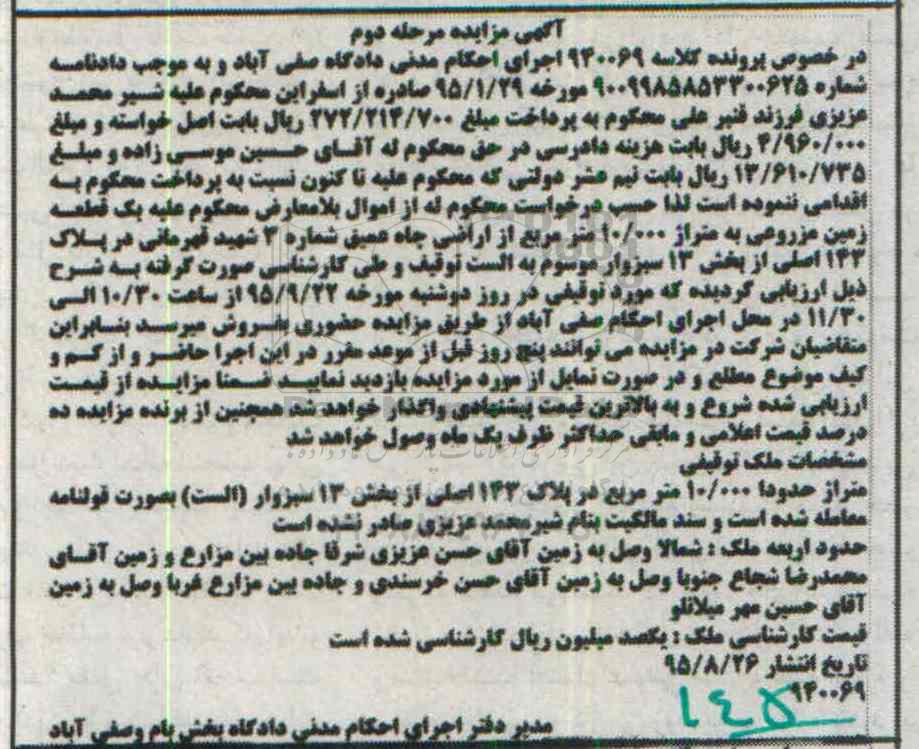 آگهی مزایده مرحله دوم
در خصوص پرونده کلاسه ۹۴۰۰۶۹ اجرای احکام مدنی دادگاه صفی آباد و به موجب دادنامه
شماره ۹۰۰۹۹۸۵۸۵۳۳۰۰۶۲۵ مورخه ۹۵/۱/۲۹ صادره از اسفراین محکوم علیه شیر محمد
عزیزی فرزند قنبر علی محکوم به پرداخت مبلغ ۲۷۲/۲۱۴/۷۰۰ ریال بابت اصل خواسته و مبلغ
۴/۹۶۰/۰۰۰ ریال بابت هزینه دادرسی در حق محکوم له آقای حسین موسی زاده و مبلغ
۱۳/۶۱۰/۷۳۵ ریال بابت نیم عشر دولتی که محکوم علیه تا کنون نسبت به پرداخت محکوم به
اقدامی ننموده است لذا حسب درخواست محکوم له از اموال بلامعارض محکوم علیه یک قطعه
زمین مزروعی به متراژ ۱۰/۰۰۰ متر مربع از اراضی چاه عمیق شماره ۳ شهید قهرمانی در پلاک
۱۴۳ اصلی از بخش ۱۳ سبزوار موسوم به الست توقیف و طی کارشناسی صورت گرفته به شرح
ذیل ارزیابی گردیده که مورد توقیفی در روز دوشنبه مورخه ۹۵/۹/۲۲ از ساعت ۱۰/۳۰ الی
۱۱/۳۰ در محل اجرای احکام صفی آباد از طریق مزایده حضوری بفروش میرسد بنابراین
متقاضیان شرکت در مزایده می توانند پنج روز قبل از موعد مقرر در این اجرا حاضر و از کم و
کیف موضوع مطلع و در صورت تمایل از مورد مزایده بازدید نمایید ضمنا مزایده از قیمت
ارزیابی شده شروع و به بالاترین قیمت پیشنهادی واگذار خواهد شد همچنین از برنده مزایده ده
درصد قیمت اعلامی و مابقی حداکثر ظرف یک ماه وصول خواهد شد
مشخصات ملک توقیفی
متراژ حدودا ۱۰/۰۰۰ متر مربع در پلاک ۱۴۳ اصلی از بخش ۱۳ سبزوار (الست) بصورت قولنامه
معامله شده است و سند مالکیت بنام شیرمحمد عزیزی صادر نشده است
حدود اربعه ملک : شمالا وصل به زمین آقای حسن عزیزی شرقا جاده بین مزارع و زمین آقای
محمدرضا شجاع جنوبا وصل به زمین آقای حسن خرسندی و جاده بین مزارع غربا وصل به زمین
آقای حسین مهر میلانلو
قیمت کارشناسی ملک : یکصد میلیون ریال کارشناسی شده است
تاریخ انتشار ۹۵/۸/۲۶
۹۴۰۰۶۹
مدیر دفتر اجرای احکام مدنی دادگاه بخش بام وصفی آباد